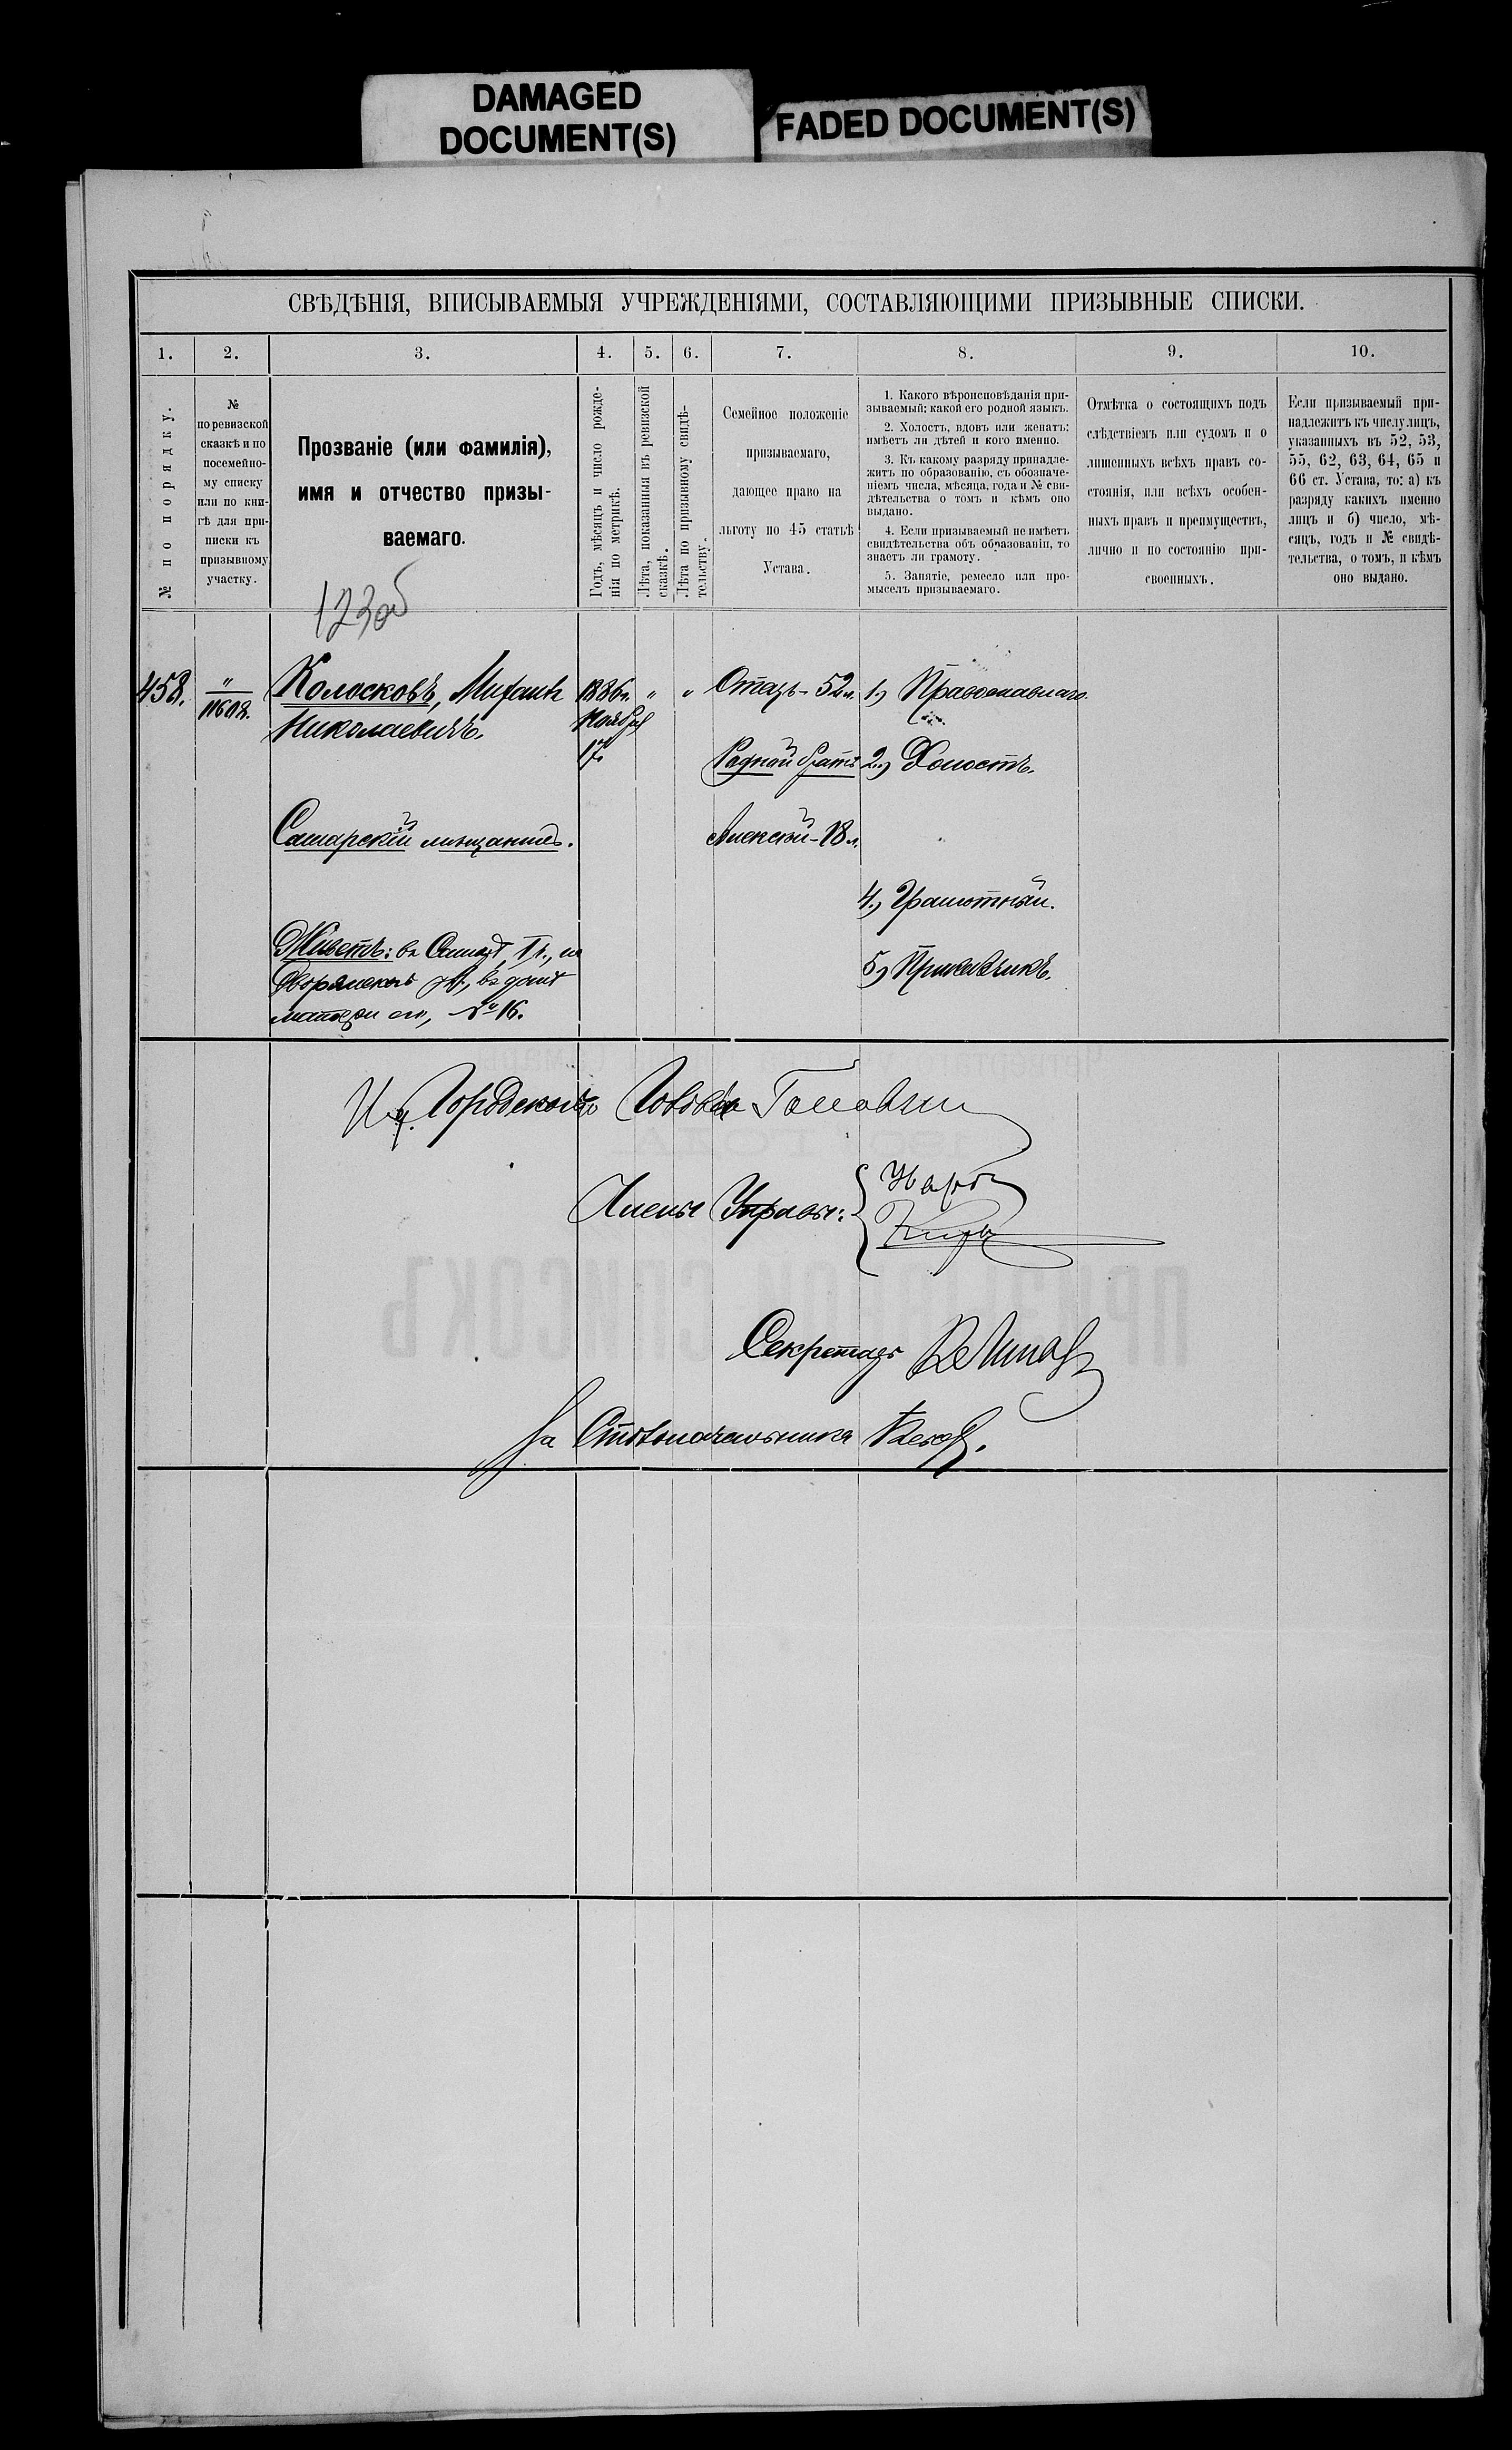 DAMAGED
DOCUMENT(S)
FADED DOCUMENT(S)
СВѢДѢНІЯ, ВПИСЫВАЕМЫЯ УЧРЕЖДЕНІЯМИ, СОСТАВЛЯЮЩИМИ ПРИЗЫВНЫЕ СПИСКИ.
1.
2.
3.
4.
5.
6.
7.
8.
9.
10.
№ по порядку.
№
по ревизской
сказкѣ и по
посемейно-
му списку
или по кни-
гѣ для при-
писки къ
призывному
участку.
Прозваніе (или фамилія),
имя и отчество призы-
ваемаго.
Годъ, мѣсяцъ и число рожде-
нія по метрикѣ.
Лѣта, показанныя въ ревизской
сказкѣ.
Лѣта по призывному свидѣ-
тельству.
Семейное положеніе
призываемаго,
дающее право на
льготу по 45 статьѣ
Устава.
1. Какого вѣроисповѣданія при-
зываемый: какой его родной языкъ.
2. Холостъ, вдовъ или женатъ:
имѣетъ ли дѣтей и кого именно.
3. Къ какому разряду принадле-
житъ по образованію, съ обозначе-
ніемъ числа, мѣсяца, года и № сви-
дѣтельства о томъ и кѣмъ оно
выдано.
4. Если призываемый не имѣетъ
свидѣтельства объ образованіи, то
знаетъ ли грамоту.
5. Занятіе, ремесло или про-
мыселъ призываемаго.
Отмѣтка о состоящихъ подъ
слѣдствіемъ или судомъ и о
лишенныхъ всѣхъ правъ со-
стоянія, или всѣхъ особен-
ныхъ правъ и преимуществъ,
лично и по состоянію при-
своенныхъ.
Если призываемый при-
надлежитъ къ числу лицъ,
указанныхъ въ 52, 53,
55, 62, 63, 64, 65 и
66 ст. Устава, то: а) къ
разряду какихъ именно
лицъ и б) число, мѣ-
сяцъ, годъ и № свидѣ-
тельства, о томъ, и кѣмъ
оно выдано.
123об
458.
"
11608.
Колосковъ, Михаилъ
Николаевичъ.
1886 г.
Ноября
17.
"
"
Отецъ - 52 л.
Родной братъ
Алексѣй - 18 л.
1.) Православнаго.
2.) Холостъ.
4.) Грамотный.
5.) Прикащикъ.
Самарскій мѣщанинъ.
Живетъ: въ Самарѣ, 1 ч., на
Дворянской ул., въ домѣ
матери его, № 16.
Городского Головы
Члены Управы:
Секретарь
За Столоначальника
ПРИЗЫВНОЙ СПИСОКЪ